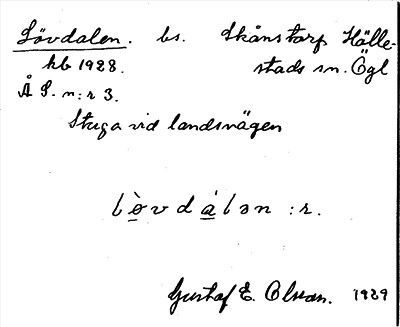 Lövdalen. bs. Skånstorp Hälle-
kb 1928. stads sn. Ögl
Å S. n:r 3.
Stuga vid landsvägen
lòvdálən :r.
Gustaf E. Olsson. 1929